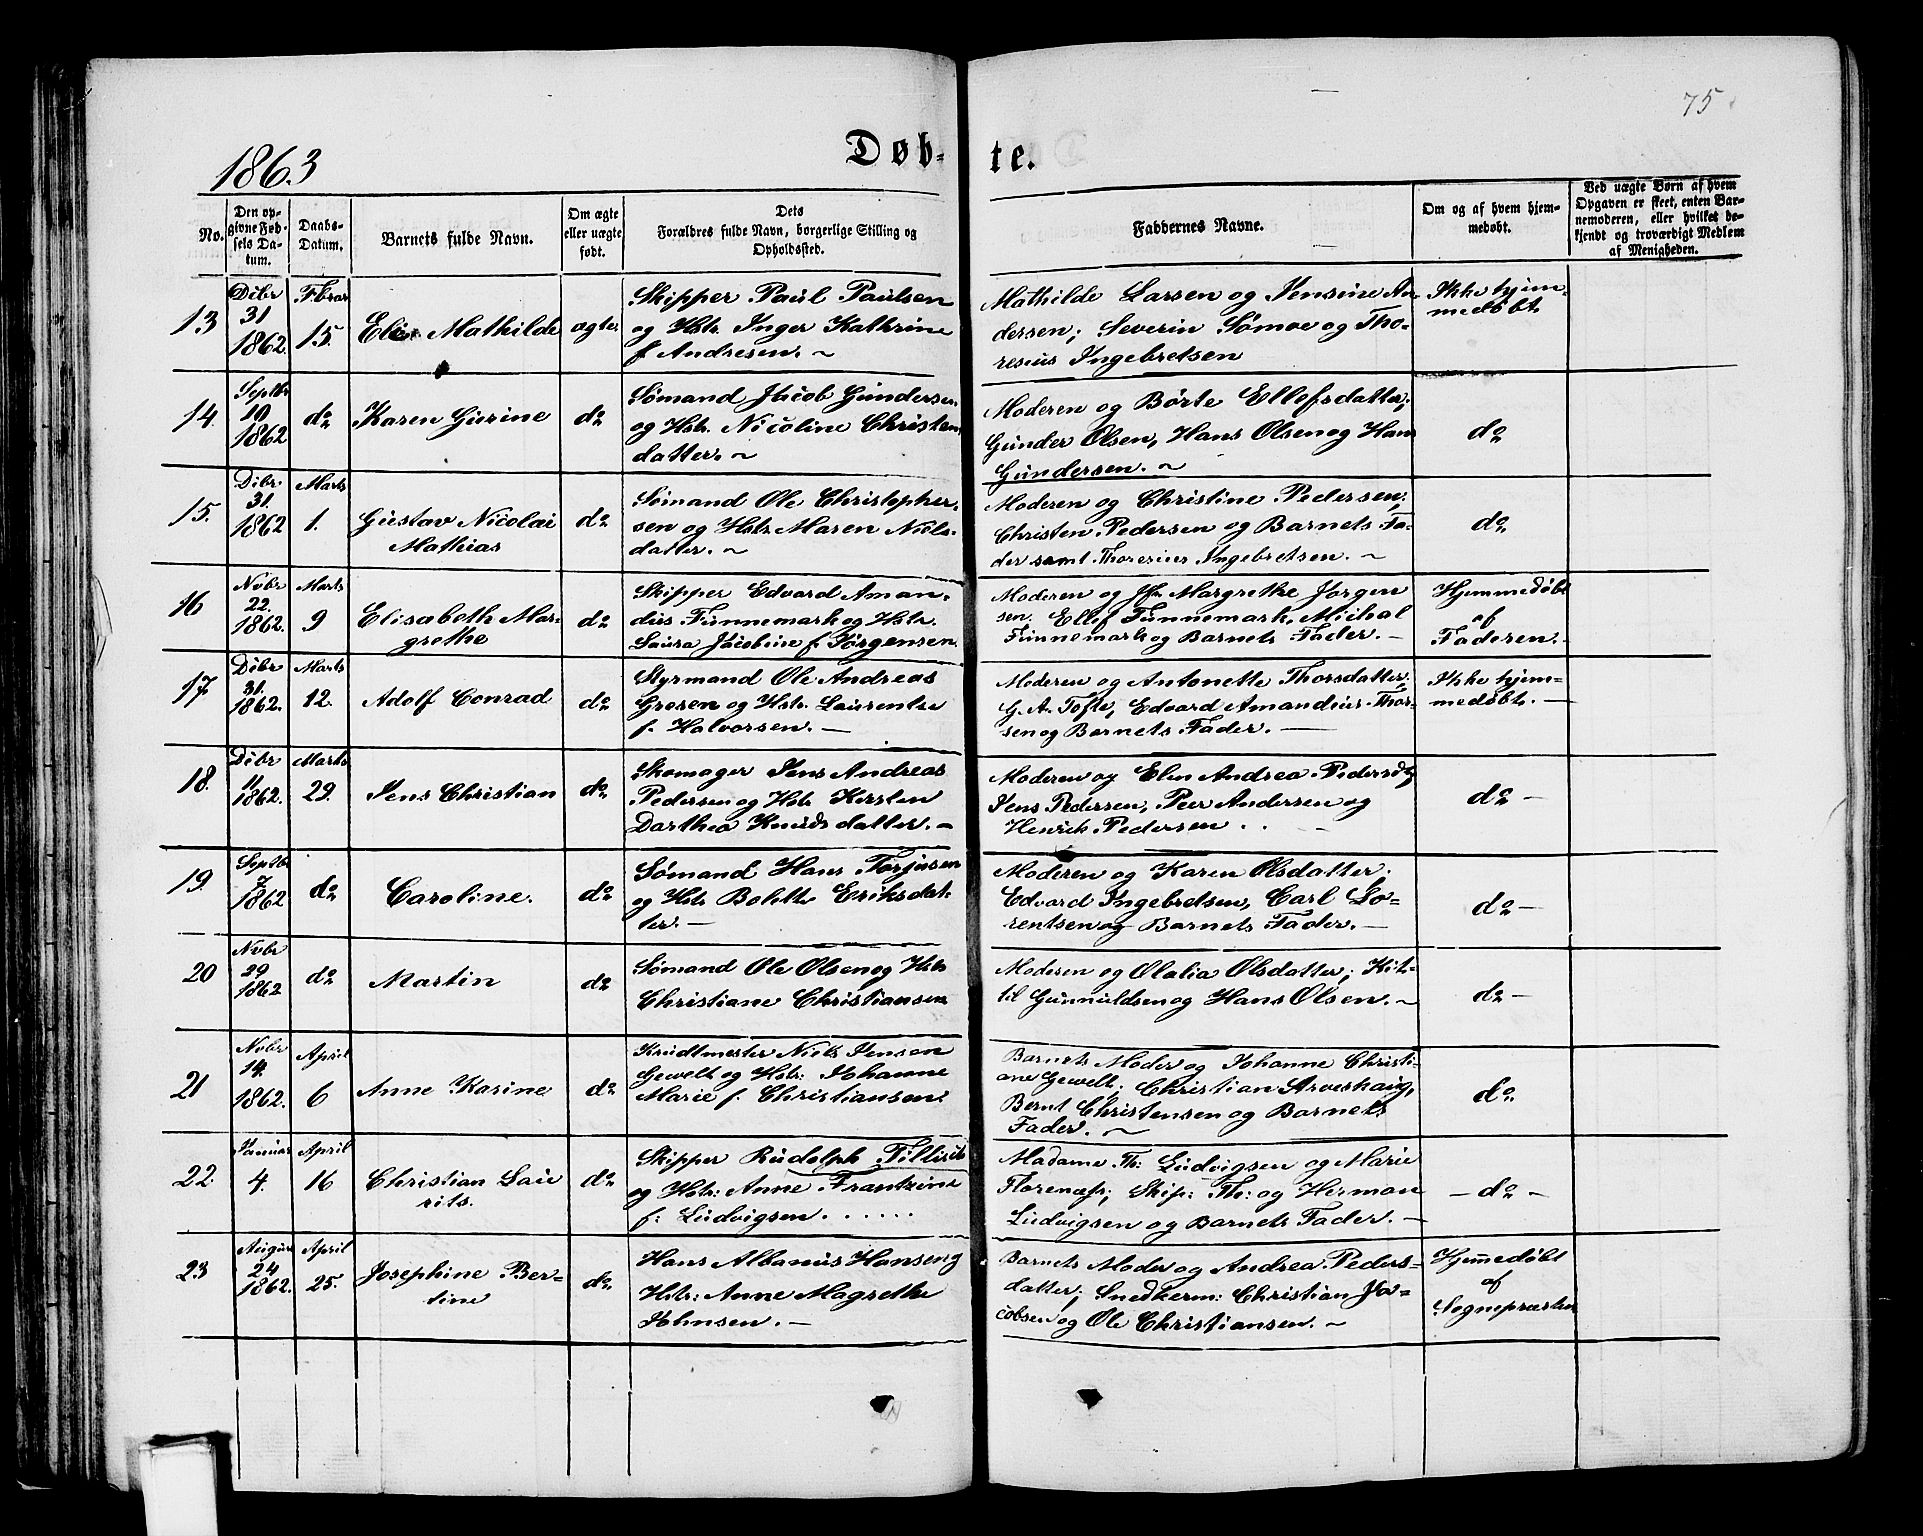 75
1863
Døb-
te.
No.
Den op-
givne Fød-
sels Da-
tum.
Daabs-
Datum.
Barnets fulde Navn.
Om ægte
eller uægte
født.
Dets
Forældres fulde Navn, borgerlige Stilling og
Opholdssted.
Faddernes Navne.
Om og af hvem hjem-
medøbt.
Ved uægte Børn af hvem
Opgaven er skeet, enten Bar-
nemoderen, eller hvilket be-
kjendt og troværdigt Medlem
af Menigheden.
13
Dcbr
31
1862.
Fbrar
15.
Elise Mathilde
ægte.
Skipper Paul Paulsen
og Hstr. Inger Kathrine
f. Andresen. ~
Mathilde Larsen og Jensine An-
dersen; Severin Sømoe og Tho-
resius Ingebretsen
Ikke hjem-
medøbt.
14.
Septbr
19
1862
do
Karen Gurine
do
Sømand Jacob Gundersen
og Hstr. Nicoline Christen-
datter. ~
Moderen og Børte Ellefsdatter;
Gunder Olsen, Hans Olsen og Hans
Gundersen. ~
do
15.
Dcbr
31.
1862
Marts
1.
Gustav Nicolai
Mathias
do
Sømand Ole Christopher-
sen og Hstr. Maren Niels-
datter. ~
Moderen og Christine Pedersen;
Christen Pedersen og Barnets Fa-
der samt Thoresius Ingebretsen. ~
do
16
Nvbr
22.
1862
Marts
9
Elisabeth Mar-
grethe
do
Skipper Edvard Aman-
dus Funnemark og Hstr.
Laura Jacobine f. Jørgensen
Moderen og Jfr. Margrethe Jørgen
sen. Ellef Funnemark, Michal
Funnemark og Barnets Fader. —
Hjemmedøbt
af
Faderen. -
17.
Dcbr
31.
1862.
Marts
12.
Adolf Conrad
do
Styrmand Ole Andreas
Grosen og Hstr. Laurentze
f. Halvorsen. —
Moderen og Antonette Thorsdatter;
G. A. Tofte, Edvard Amandius Thor-
sen og Barnets Fader. —
Ikke hjem-
medøbt. —
18.
Dcbr
11
1862.
Marts
29.
Jens Christian
do
Skomager Jens Andreas
Pedersen og Hstr. Kirsten
Dorthea Knudsdatter. —
Moderen og Elen Andrea Pedersd;
Jens Pedersen, Peer Andersen og
Henrik Pedersen . . —
do —
19.
Septbr
7.
1862
do
Caroline.
do
Sømand Hans Torjusen
og Hstr. Bolette Eriksdat-
ter. —
Moderen og Karen Olsdatter.
Edvard Ingebretsen, Carl Lo-
rentsen og Barnets Fader. —
do —
20
Nvbr
29
1862
do
Martin
do
Sømand Ole Olsen og Hstr
Christiane Christiansen
Moderen og Olalia Olsdatter; Kit-
til Gunnuldsen og Hans Olsen. ~
do —
21
Nvbr
14.
1862.
April
6
Anne Karine
do
Krudtmester Niels Jensen
Gewelt og Hstr: Johanne
Marie f. Christiansen.
Barnets Moder og Johanne Christi-
ane Gewelt; Christian Arveshaug,
Bernt Christensen og Barnets
Fader. ~
do
22.
Januar
4.
April
16
Christian Lau
rits.
do
Skipper Rudolph Tillisch
og Hstr: Anne Frantzine
f: Ludvigsen . . . . . .
Madame Th: Ludvigsen og Marie
Florenæs; Skip: Th: og Herman
Ludvigsen og Barnets Fader. —
— do —
23
August
24
1862.
April
25.
Josephine Ber-
tine
do
Hans Albanus Hansen og
Hstr: Anne Magrethe
Johnsen. —
Barnets Moder og Andrea Peders-
datter; Snedkerm: Christian Ja-
cobsen og Ole Christiansen. ~
Hjemmedøbt
af
Sognepræsten